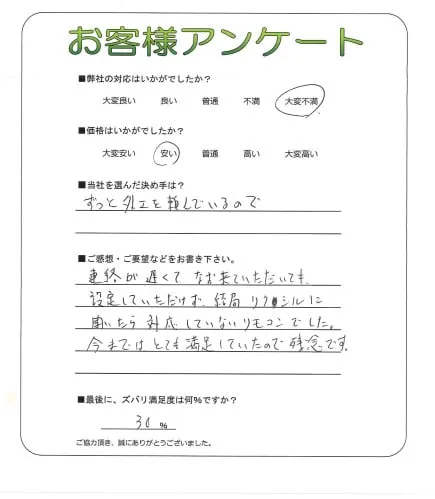 お客様アンケート
■弊社の対応はいかがでしたか？
大変良い 良い 普通 不満 大変不満
■価格はいかがでしたか？
大変安い 安い 普通 高い 大変高い
■当社を選んだ決め手は？
ずっと外工を頼んでいるので
■ご感想・ご要望などをお書き下さい。
連絡が遅くて なお来ていただいても、
設定していただけず、結局 リクシルに
聞いたら 対応していないリモコンでした。
今までは とても満足していたので 残念です。
■最後に、ズバリ満足度は何％ですか？
30 %
ご協力頂き、誠にありがとうございました。